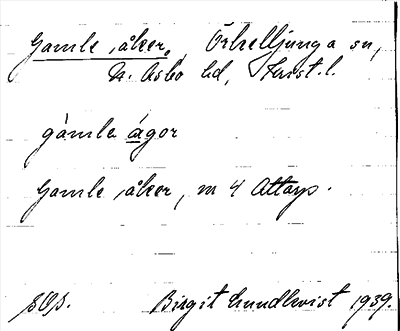 Gamle åker, Örkelljunga sn,
N. Åsbo hd, Krist. l.
gàmla ágor
Gamle åker, m 4 Attarp.
sOp. Birgit Lundkvist 1939.